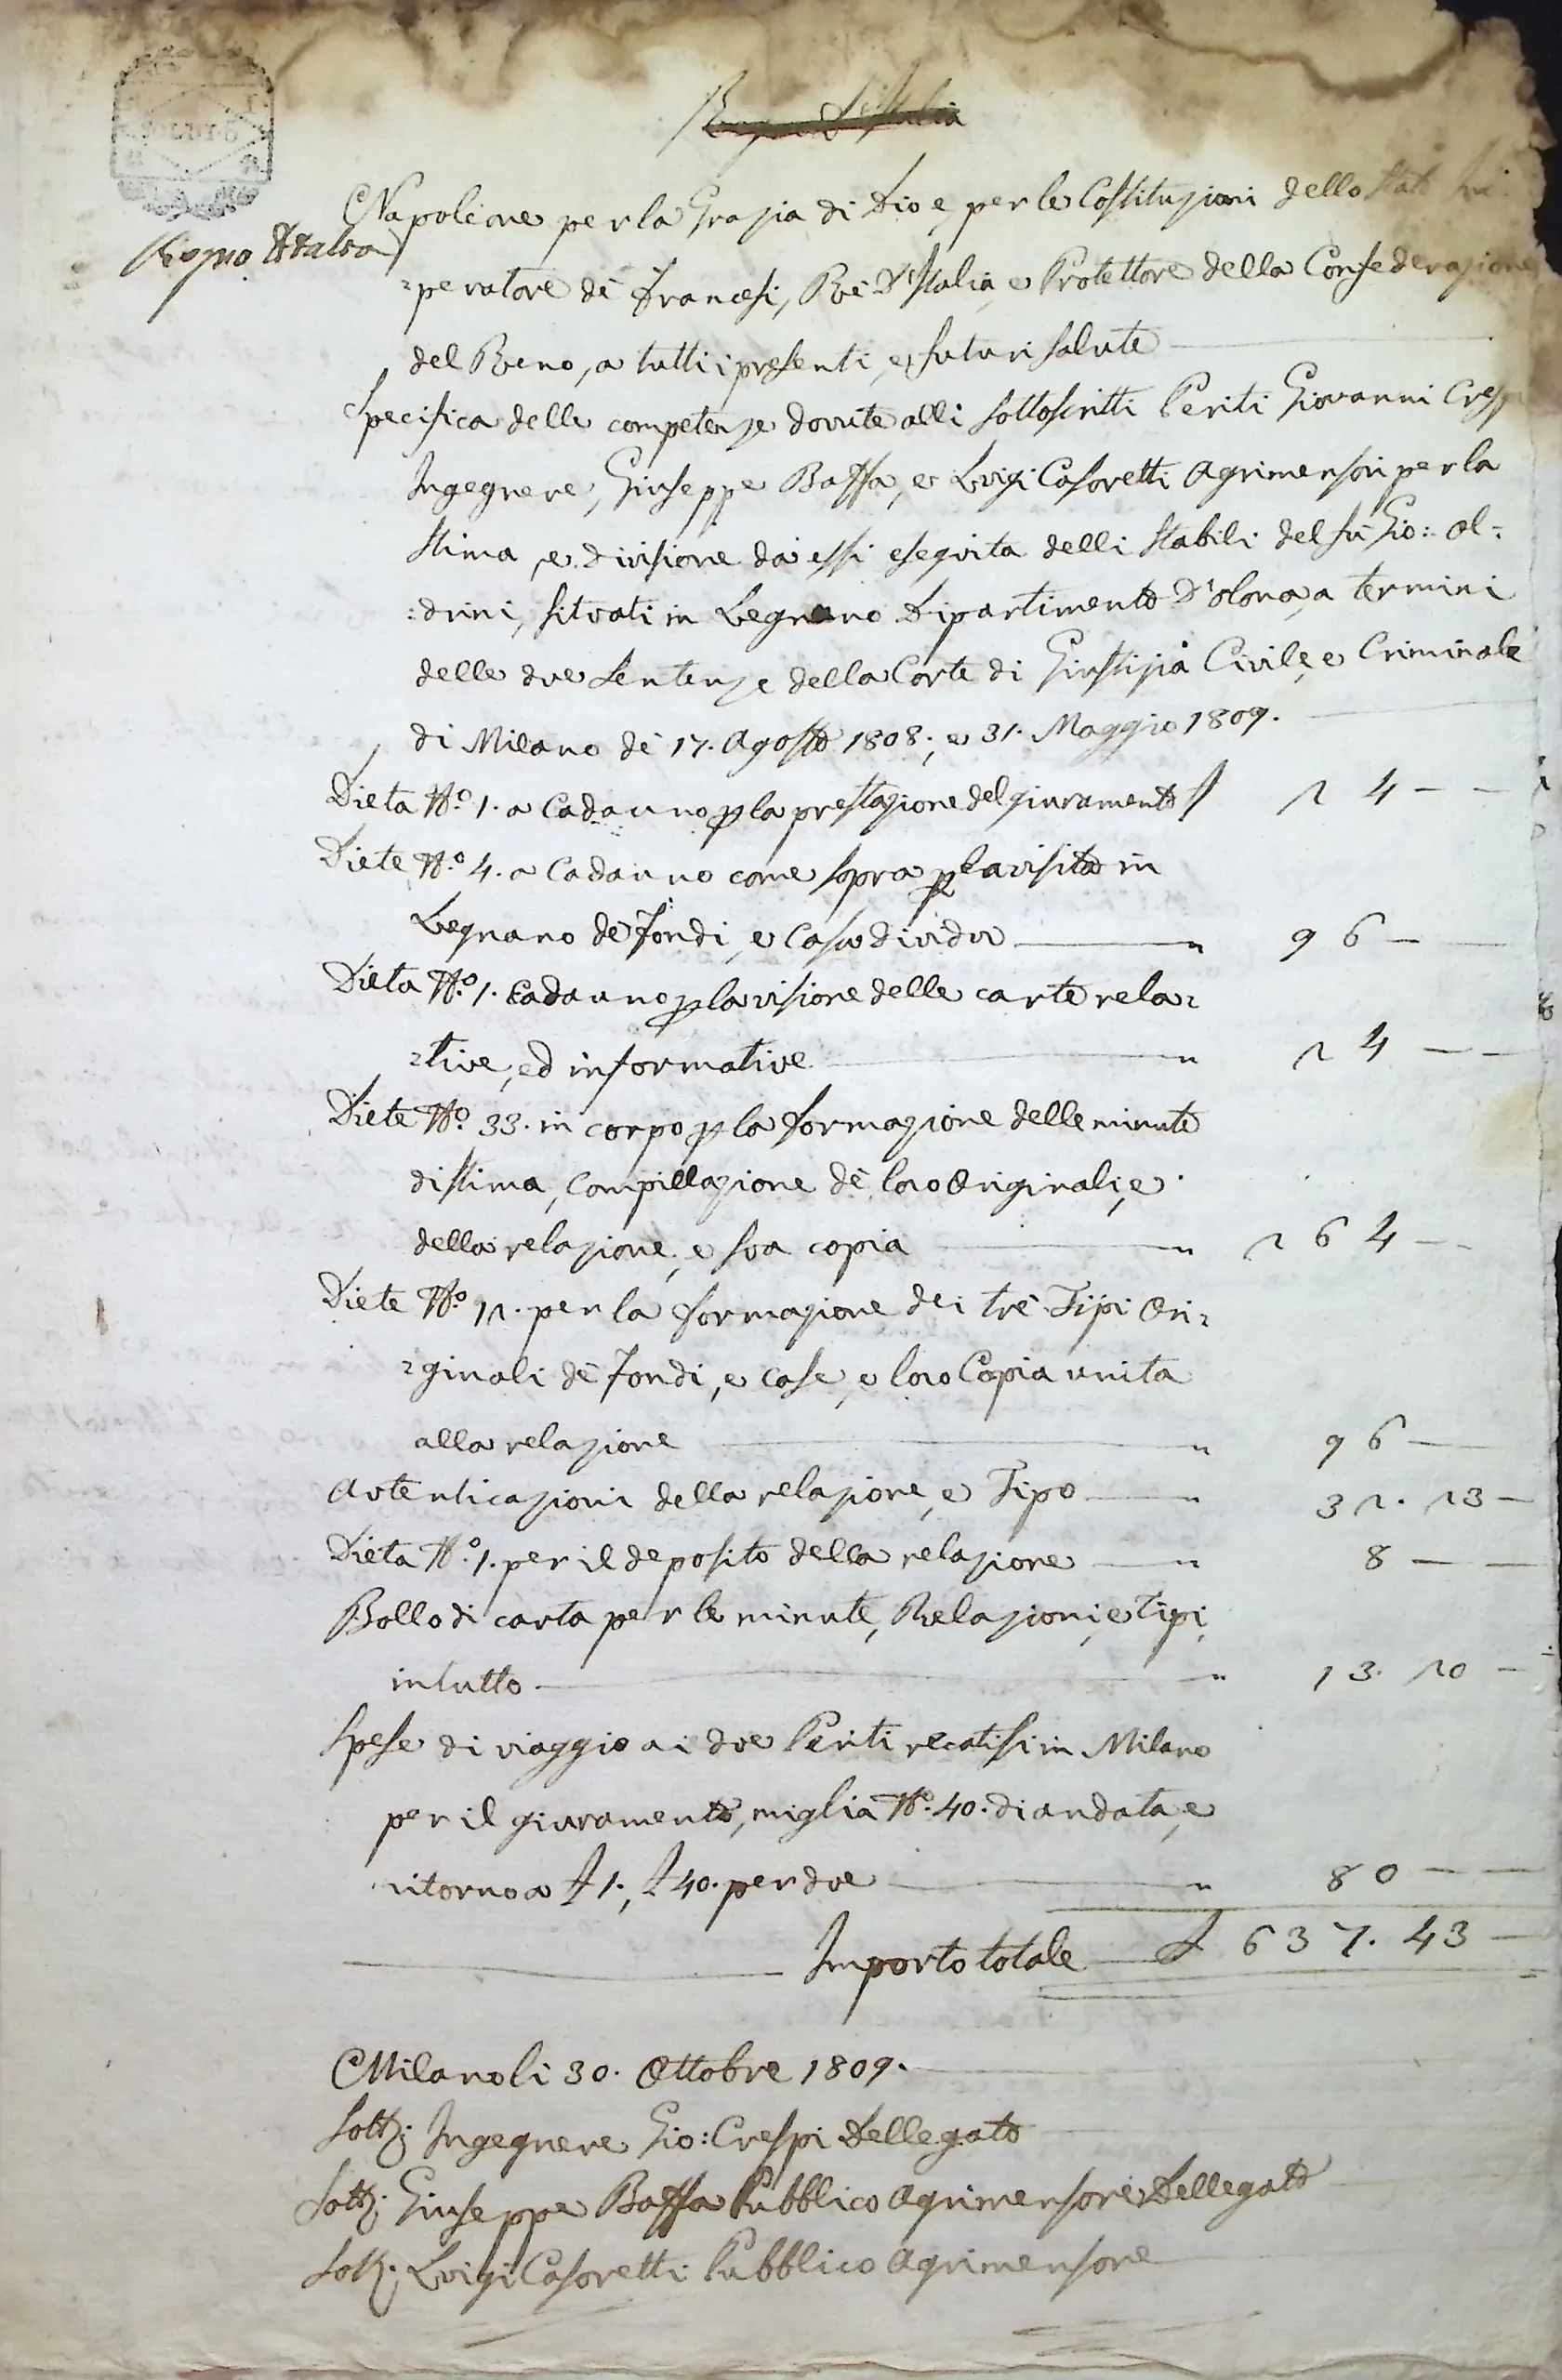 SOLDI 6
Regno d'Italia
Regno d'Italia
Napoleone per la Grazia di Dio e, per le Costituzioni dello Stato Im:
=peratore de' Francesi, Rè d'Italia, e Protettore della Confederazione
del Reno, a tutti i presenti, e futuri salute
Specifica delle competenze dovute alli sottoscritti Periti Giovanni Crespi
Ingegnere, Giuseppe Baffa, e Luigi Casoretti Agrimensori per la
stima, e divisione da essi eseguita delli stabili del fu Gio: Ol=
:drini, situati in Legnano Dipartimento d'Olona, a termini
delle due sentenze della Corte di Giustizia Civile, e Criminale
di Milano de' 17. Agosto 1808., e 31. Maggio 1809.
Dieta N.º 1. a Cadauno p la prestazione del giuramento £ 24 - -
Diete N.º 4. a Cadauno come sopra p la visita in
Legnano de' Fondi, e Case dividue " 96 -
Dieta N.º 1. Cadauno p la visione delle carte rela=
=tive, ed informative " 24 - -
Diete N.º 33. in corpo p la formazione delle minute
di stima, Compillazione de' loro Originali, e
della relazione, e sua copia " 264 -
Diete N.º 12. per la formazione dei trè Tipi Ori=
=ginali de' Fondi, e Case, e loro Copia unita
alla relazione " 96 -
Autenticazioni della relazione, e Tipo " 32. 23 -
Dieta N.º 1. per il deposito della relazione " 8 - -
Bollo di carta per le minute, Relazioni, e Tipi,
in tutto " 13. 20 -
Spese di viaggio ai due Periti recatisi in Milano
per il giuramento, miglia N.º 40. di andata, e
ritorno a £ 1., £ 40. per due " 80 - -
Importo totale £ 637. 43 -
Milano li 30. Ottobre 1809.
Sott; Ingegnere Gio: Crespi Dellegato
Sott; Giuseppe Baffa Pubblico Agrimensore Dellegato
Sott; Luigi Casoretti Pubblico Agrimensore